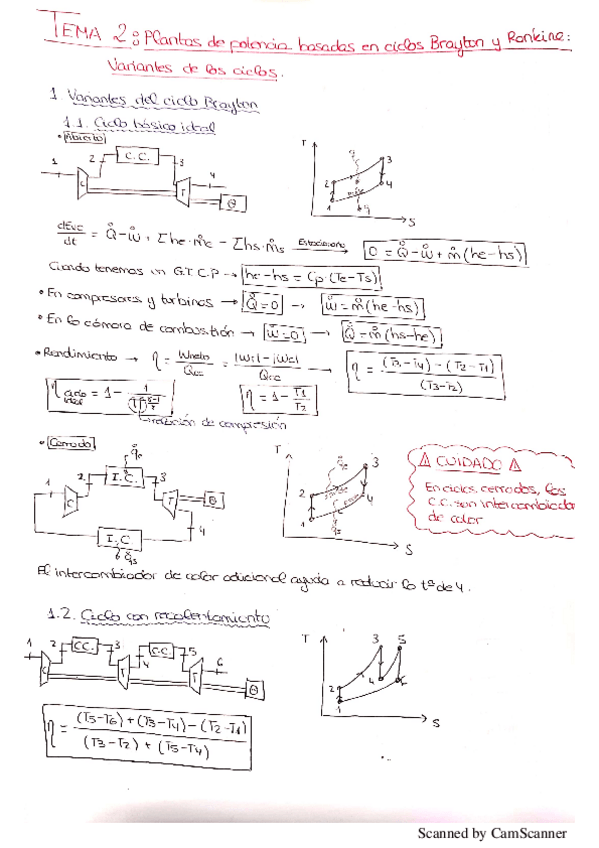 TEMA 2: Plantas de potencia basadas en ciclos Brayton y Rankine:
Variantes de los ciclos.
1 Variantes del ciclo Brayton
1.1. Ciclo básico ideal
• Abierto
1 2 C.C. 3 4 C T G
T 1 2 3 4 q q S
dEvc/dt = Q̇ - Ẇ + Σhe·ṁe - Σhs·ṁs Estacionario → 0 = Q̇ - Ẇ + ṁ(he-hs)
Cuando tenemos un G.T.C.P → he-hs = Cp(Te-Ts)
• En compresores y turbinas → Q̇=0 → Ẇ=ṁ(he-hs)
• En la cámara de combustión → Ẇ=0 → Q̇=ṁ(hs-he)
• Rendimiento → η = Wneto/Qcc = |Wt|-|Wc|/Qcc → η = (T3-T4)-(T2-T1)/(T3-T2)
η ciclo ideal = 1 - 1/ η = 1 - T1/T2
relación de compresión
• Cerrado
q̇e 1 2 I.C. 3 4 C T G I.C q̇s
T 1 2 3 4 q̇e q̇s S
⚠ CUIDADO ⚠
En ciclos cerrados, las
C.C. son intercambiador
de calor
El intercambiador de calor adicional ayuda a reducir la tª de 4.
1.2. Ciclo con recalentamiento
1 2 C.C. 3 4 C.C. 5 6 C T T G
T 1 2 3 4 5 6 S
η = (T5-T6)+(T3-T4)-(T2-T1)/(T3-T2)+(T5-T4)
Scanned by CamScanner